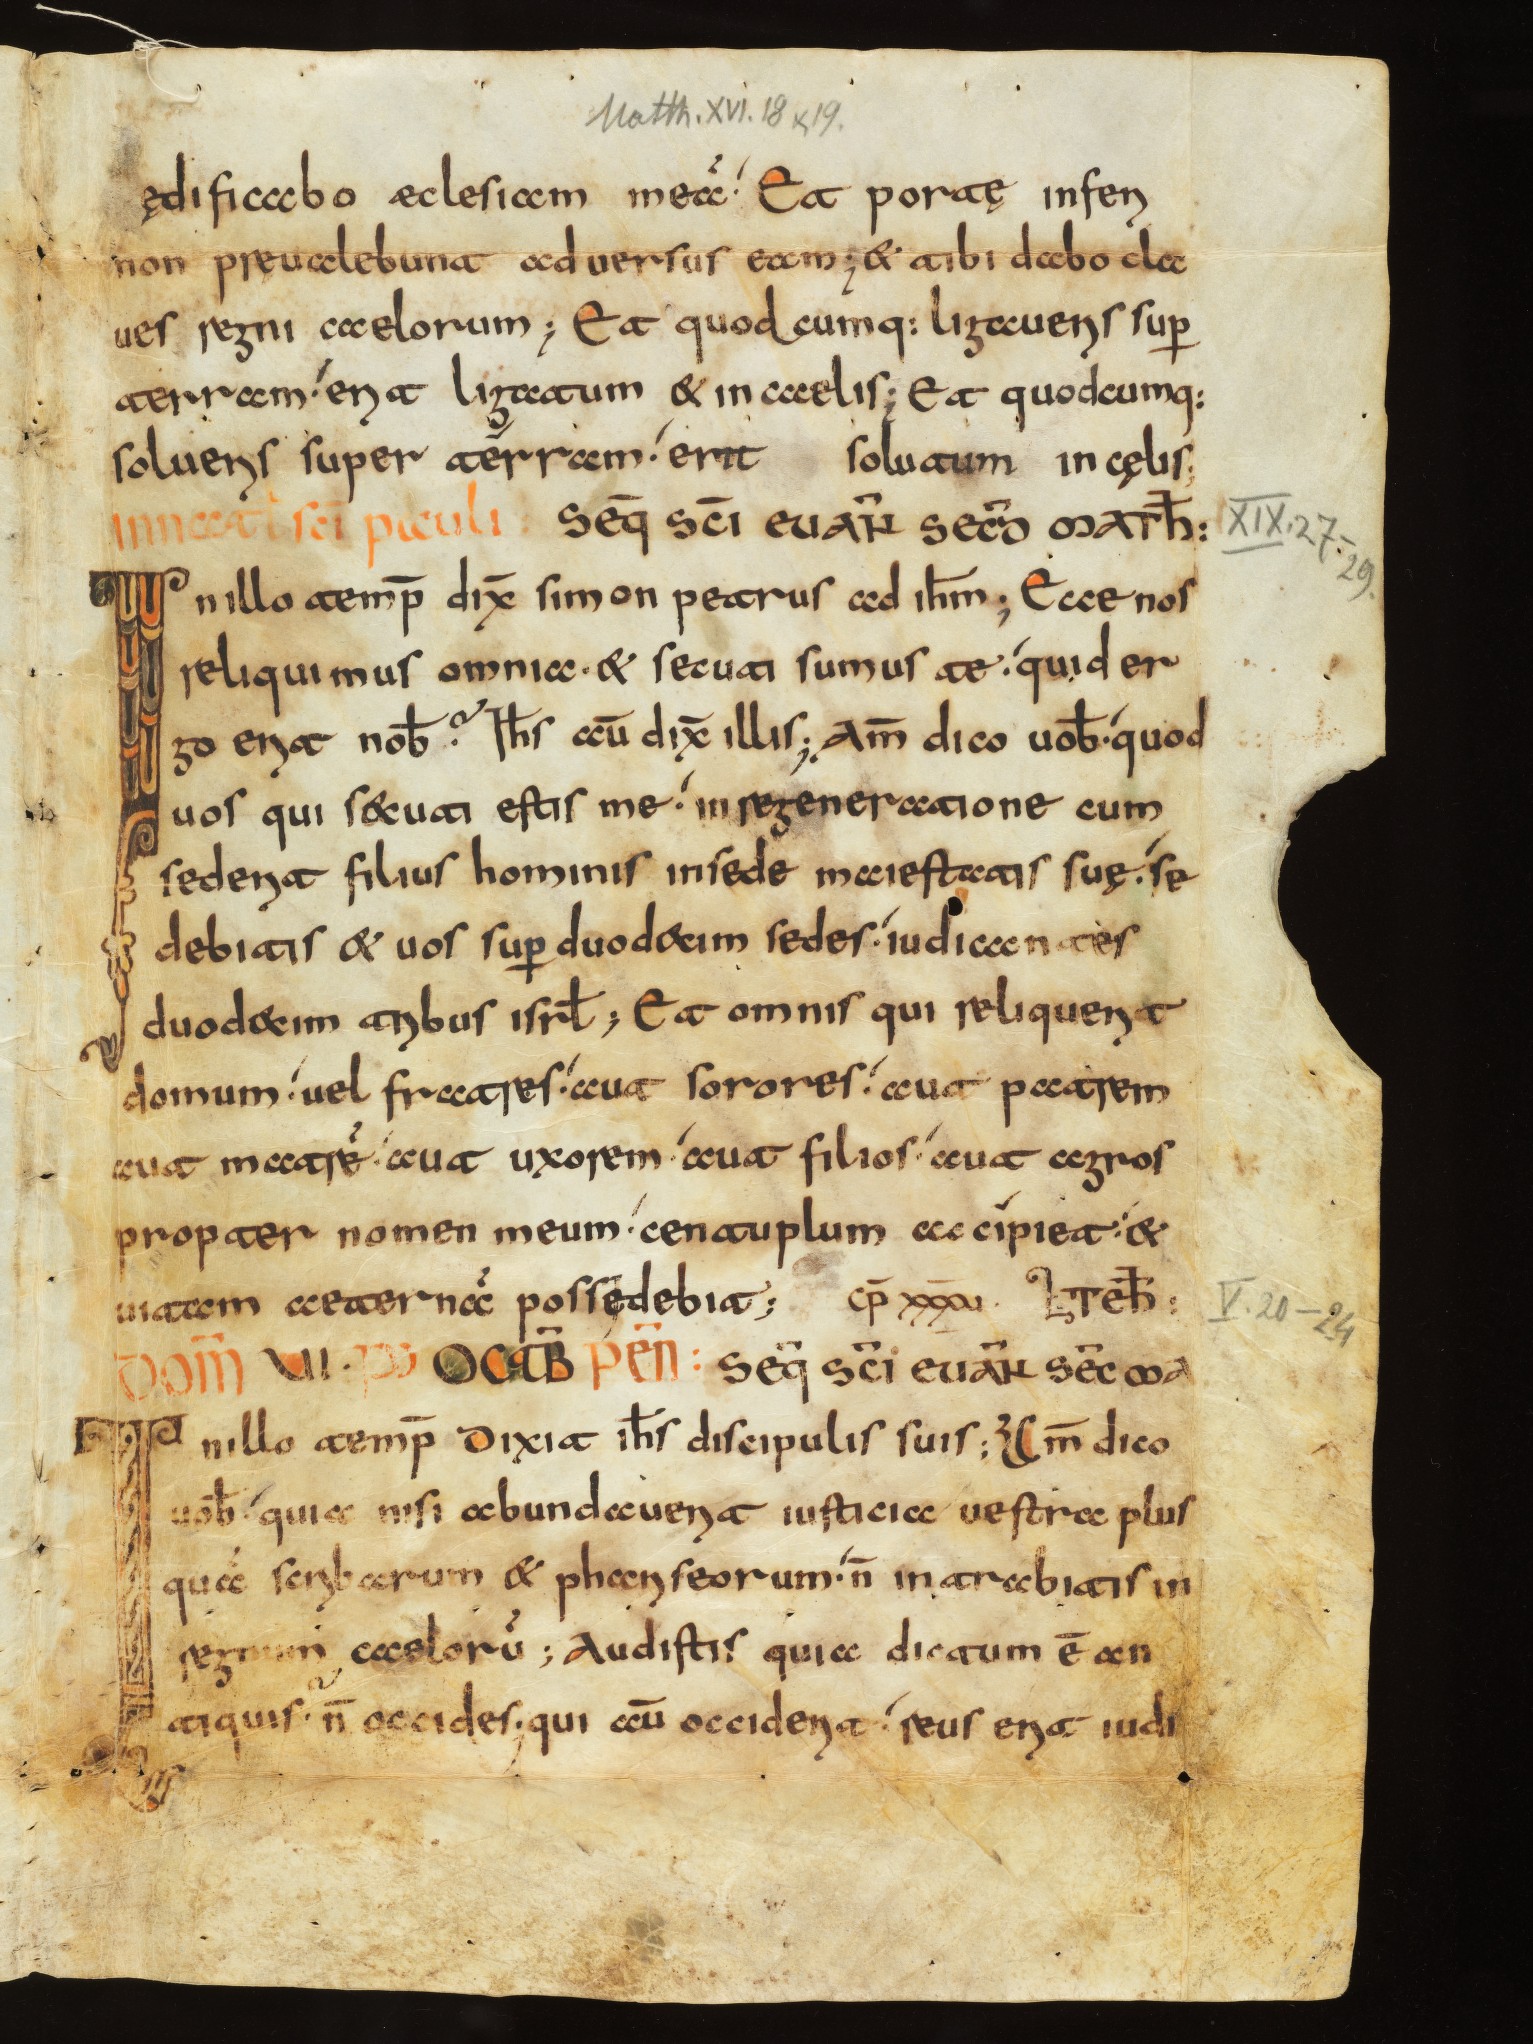 Matth. XVI. 18 & 19.
ędificabo æclesiam meā. Et portę inferi
non pręualebunt aduersus eam; & tibi dabo cla
ues regni caelorum; Et quodcumq: ligaueris sup
terram. erit ligatum & in caelis; Et quodcumq:
solueris super terram. erit solutum in cęlis;
In nat sc̄i pauli: Seq̄ sc̄i euāḡ sec̄d math̄: XIX. 27.-29.
In illo temp̄ dix̄ simon petrus ad ih̄m; Ecce nos
reliquimus omnia. & secuti sumus te. quid er
go erit nob̄? Ih̄s aū dix̄ illis; Am̄ dico uob̄. quod
uos qui secuti estis me. in regeneratione cum
sederit filius hominis in sede maiestatis suę. se
debitis & uos sup duodecim sedes. iudicantes
duodecim tribus isrl̄; Et omnis qui reliquerit
domum. uel fratres. aut sorores. aut patrem
aut matrē. aut uxorem. aut filios. aut agros
propter nomen meum. centuplum accipiet. &
uitam aeternā possędebit; V. 20-24
Dom̄ VII. p̄ oct̄b pen̄: Seq̄ sc̄i euāḡ sec̄ ma
In illo temp̄ dixit ih̄s discipulis suis; Am̄ dico
uob̄. quia nisi abundauerit iusticia uestra plus
quā scribarum & phariseorum. n̄ intrabitis in
regnum caelorū; Audistis quia dictum ē an
tiquis. n̄ occides; qui aū occiderit. reus erit iudi